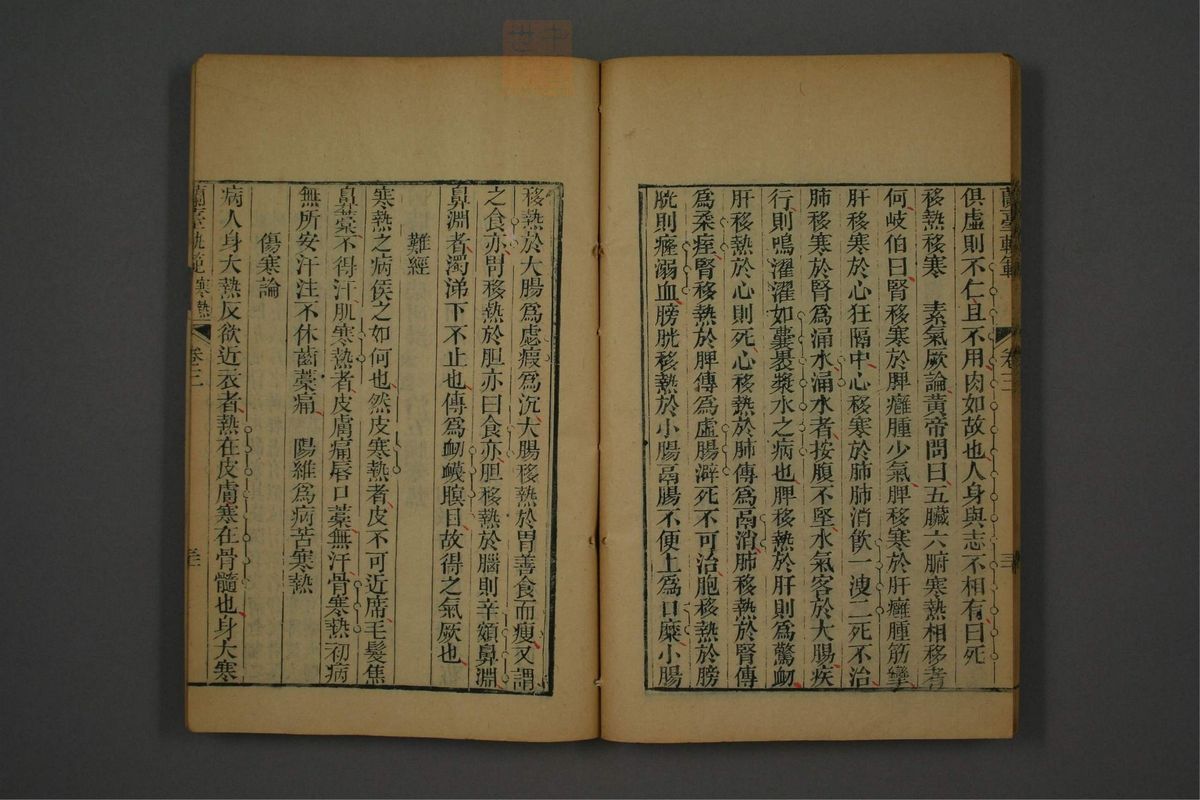 蘭臺軌範 卷三 三
俱虛則不仁且不用肉如故也人身與志不相有曰死
移熱移寒 素氣厥論黃帝問曰五臟六腑寒熱相移者
何岐伯曰腎移寒於脾癰腫少氣脾移寒於肝癰腫筋攣
肝移寒於心狂隔中心移寒於肺肺消飲一溲二死不治
肺移寒於腎爲涌水涌水者按腹不堅水氣客於大腸疾
行則鳴濯濯如囊裹漿水之病也脾移熱於肝則爲驚衂
肝移熱於心則死心移熱於肺傳爲鬲消肺移熱於腎傳
爲柔痓腎移熱於脾傳爲虛腸澼死不可治胞移熱於膀
胱則癃溺血膀胱移熱於小腸鬲腸不便上爲口糜小腸
移熱於大腸爲虙瘕爲沉大腸移熱於胃善食而瘦又謂
之食亦胃移熱於胆亦曰食亦胆移熱於腦則辛頞鼻淵
鼻淵者濁涕下不止也傳爲衂衊瞑目故得之氣厥也
難經
寒熱之病侯之如何也然皮寒熱者皮不可近席毛髮焦
鼻藁不得汗肌寒熱者皮膚痛唇口藁無汗骨寒熱初病
無所安汗注不休齒藁痛 陽維爲病苦寒熱
傷寒論
病人身大熱反欲近衣者熱在皮膚寒在骨髓也身大寒
蘭臺軌範 寒熱 卷三 三